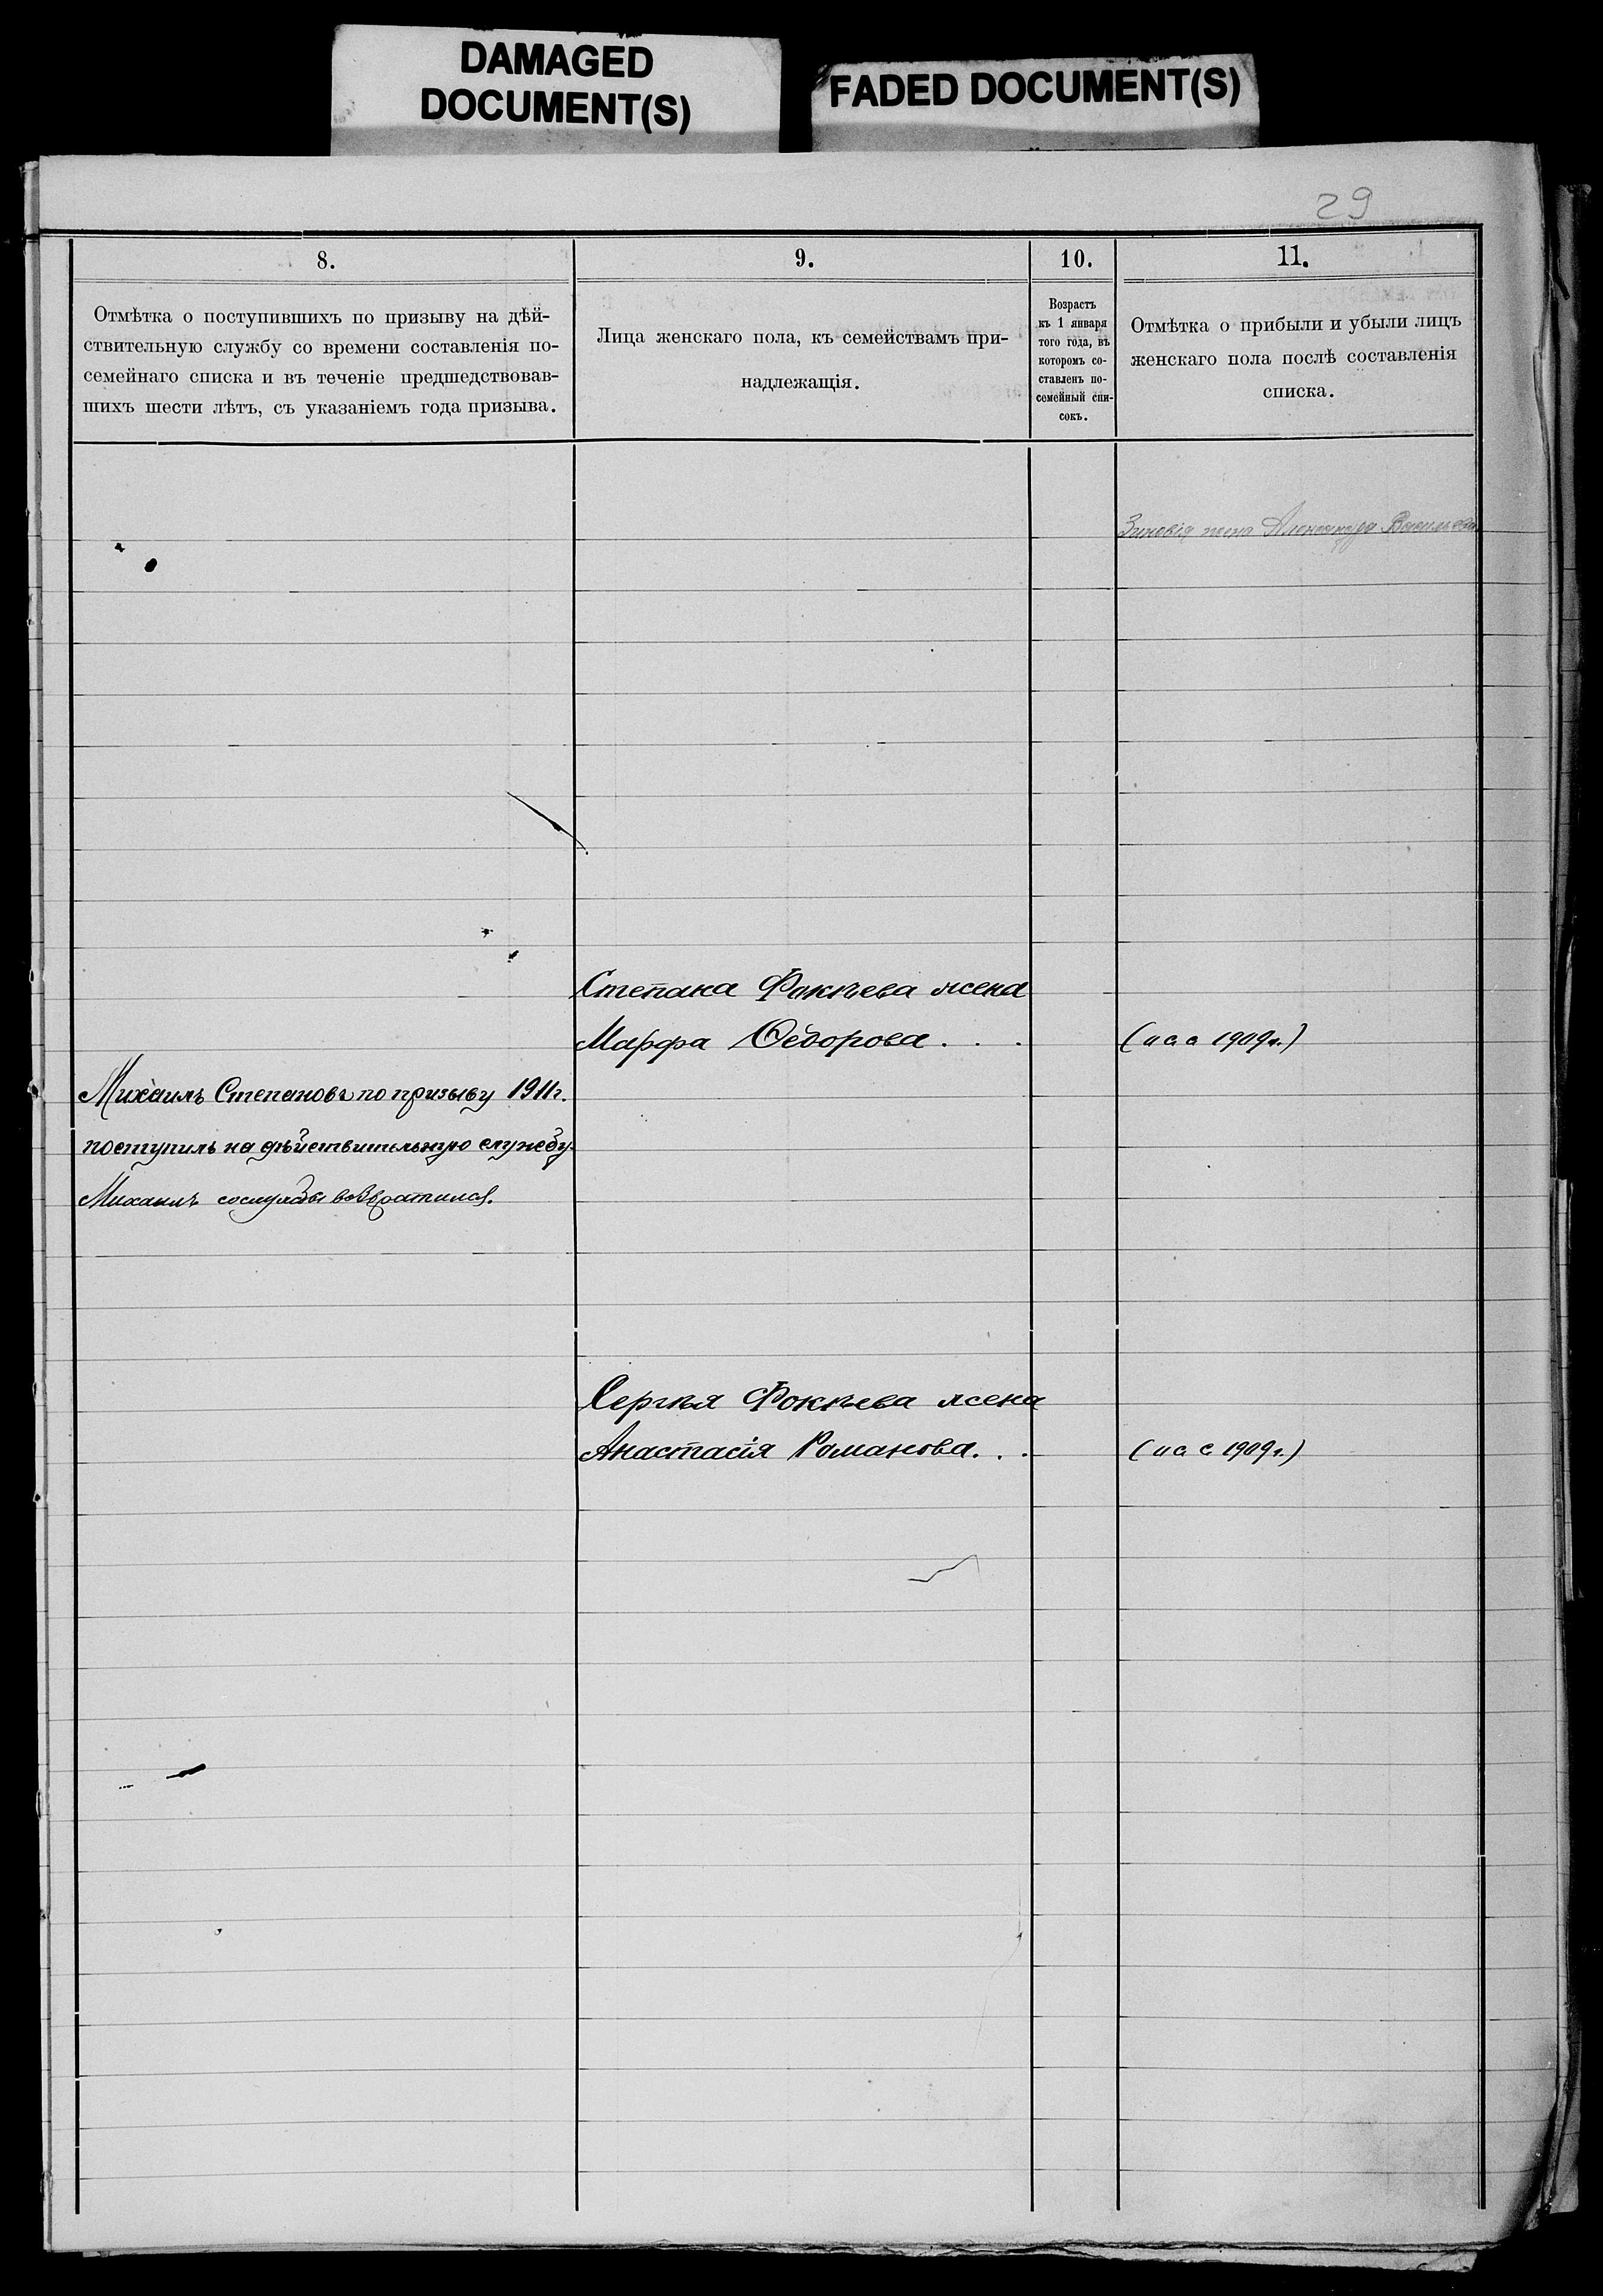 DAMAGED
DOCUMENT(S)
FADED DOCUMENT(S)
29
8.
9.
10.
11.
Отмѣтка о поступившихъ по призыву на дѣй-
ствительную службу со времени составленія по-
семейнаго списка и въ теченіе предшедствовав-
шихъ шести лѣтъ, съ указаніемъ года призыва.
Лица женскаго пола, къ семействамъ при-
надлежащія.
Возрастъ
къ 1 января
того года, въ
которомъ со-
ставленъ по-
семейный спи-
сокъ.
Отмѣтка о прибыли и убыли лицъ
женскаго пола послѣ составленія
списка.
Зиновія жена Александра Васильева
Степана Фокѣева жена
Марфа Ѳедорова . . .
( 1909г.)
Михаилъ Степановъ по призыву 1911г.
поступилъ на дѣйствительную службу.
Михаилъ со службы возвратился.
Сергѣя Фокѣева жена
Анастасія Романова. . .
( 1909г.)